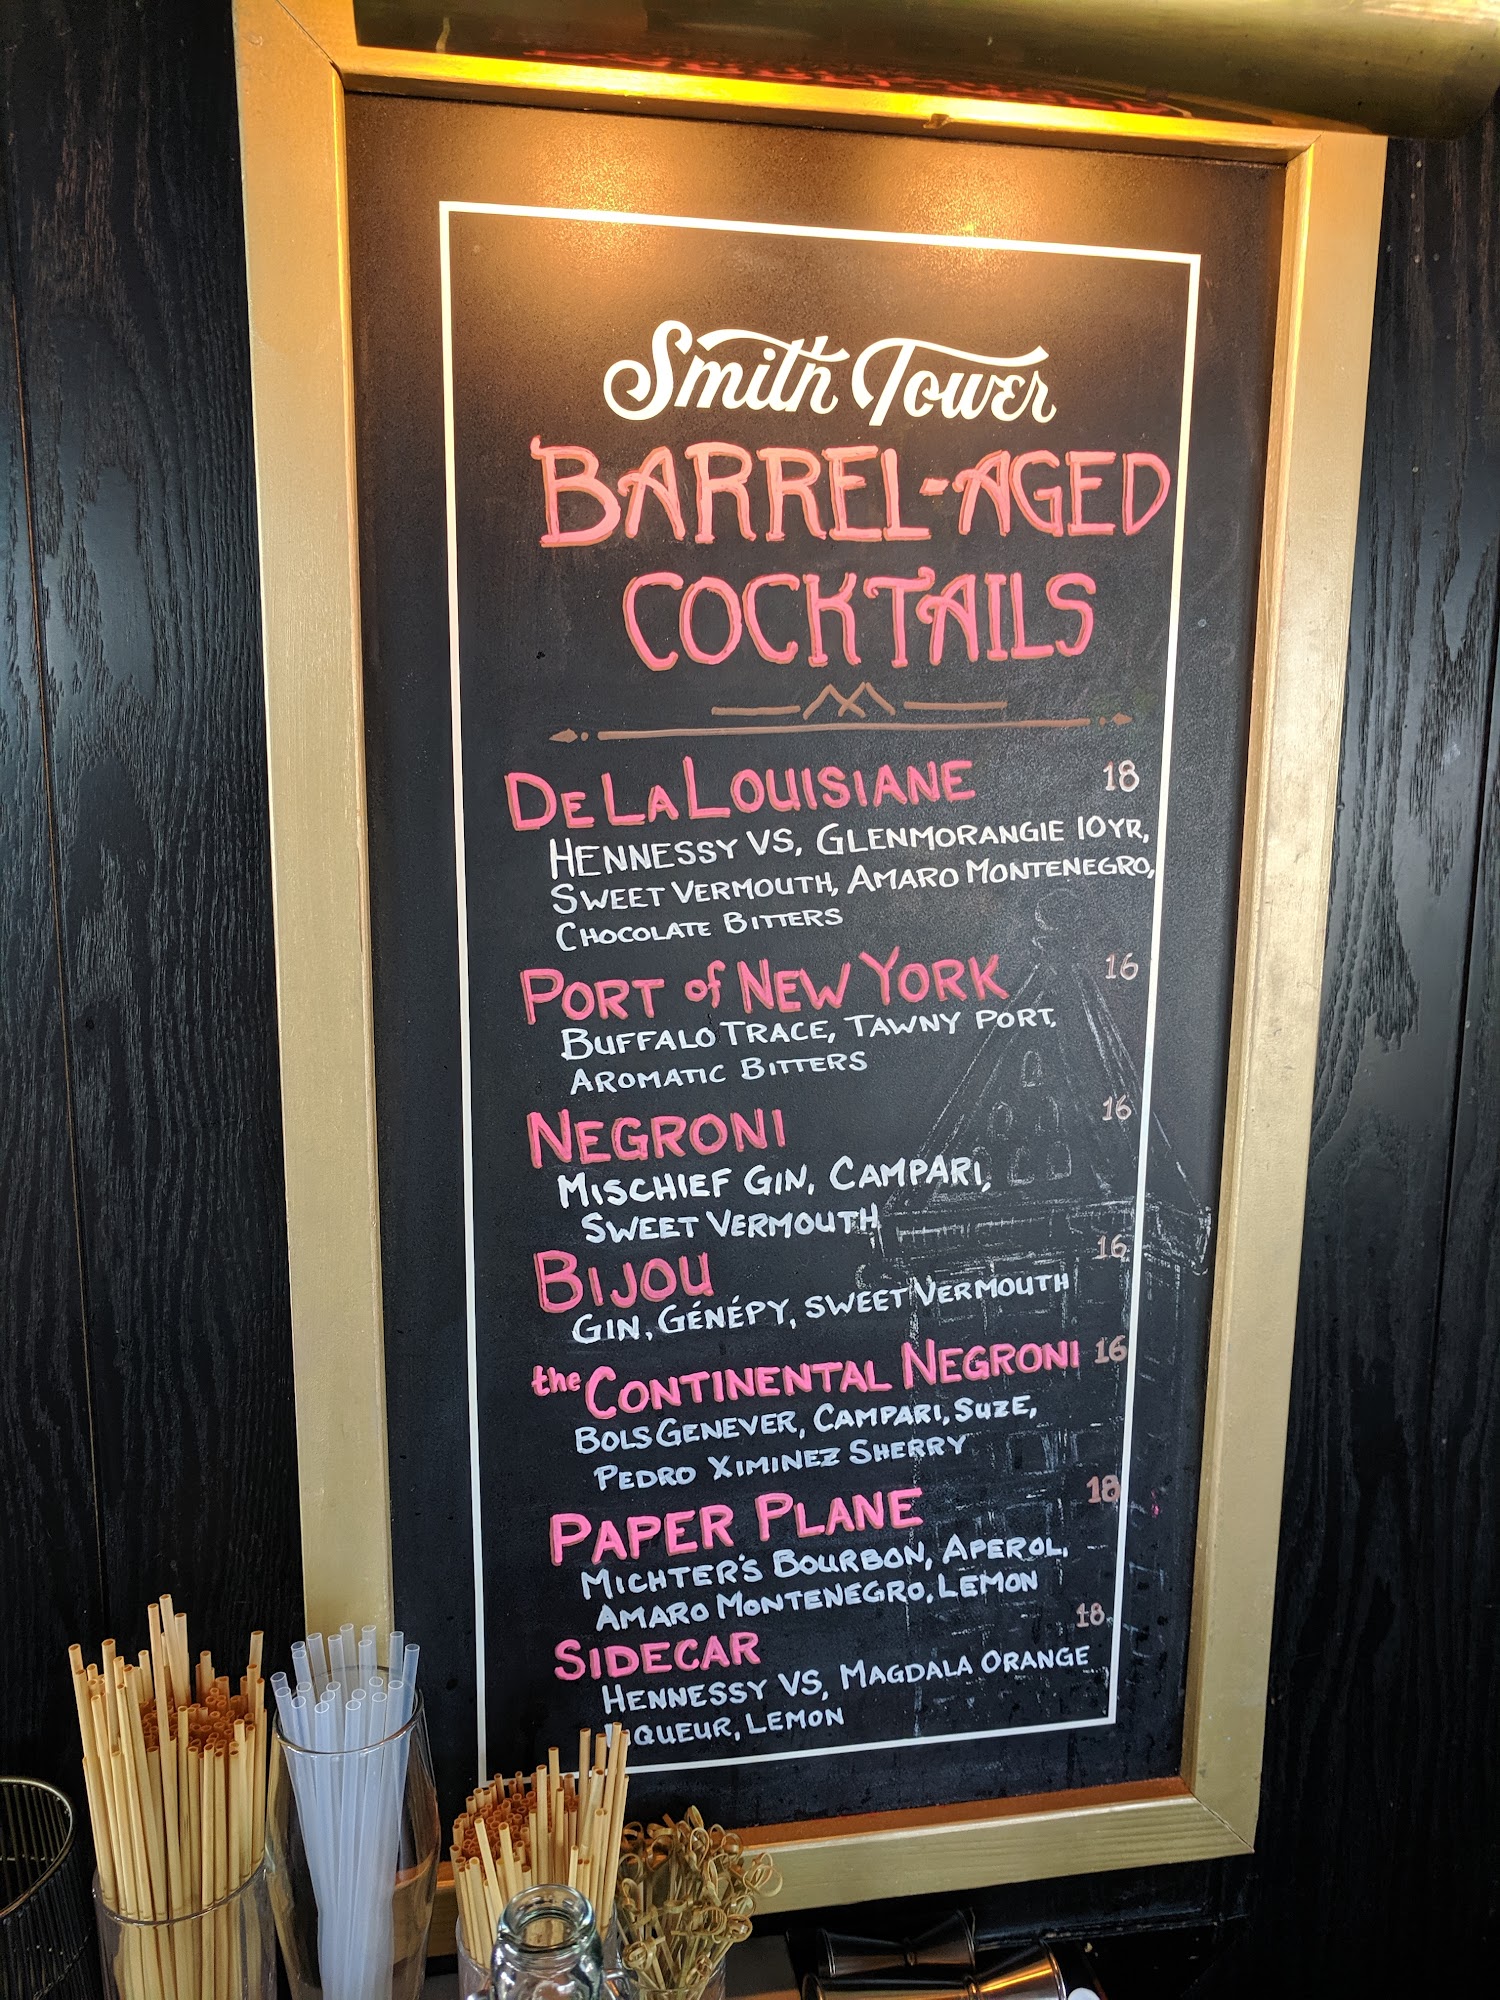 Smith Tower
BARREL-AGED
COCKTAILS
DE LA LOUISIANE 18
HENNESSY VS, GLENMORANGIE 10YR,
SWEET VERMOUTH, AMARO MONTENEGRO,
CHOCOLATE BITTERS
PORT of NEW YORK 16
BUFFALO TRACE, TAWNY PORT,
AROMATIC BITTERS
NEGRONI 16
MISCHIEF GIN, CAMPARI,
SWEET VERMOUTH
BIJOU 16
GIN, GÉNÉPY, SWEET VERMOUTH
the CONTINENTAL NEGRONI 16
BOLS GENEVER, CAMPARI, SUZE,
PEDRO XIMINEZ SHERRY
PAPER PLANE 18
MICHTER'S BOURBON, APEROL,
AMARO MONTENEGRO, LEMON
SIDECAR 18
HENNESSY VS, MAGDALA ORANGE
LIQUEUR, LEMON